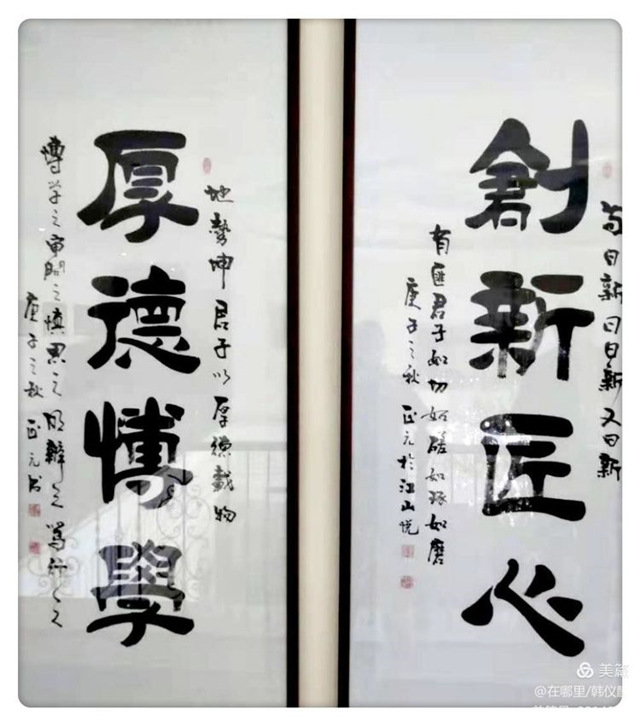 苟日新日日新又日新
創新匠心
有匪君子如切如磋如琢如磨
庚子之秋 正元於江山悦
地勢坤君子以厚德載物
厚德愽學
愽学之審問之慎思之明辯之篤行之
庚子之秋 正元书
美篇
@在哪里/韩仪